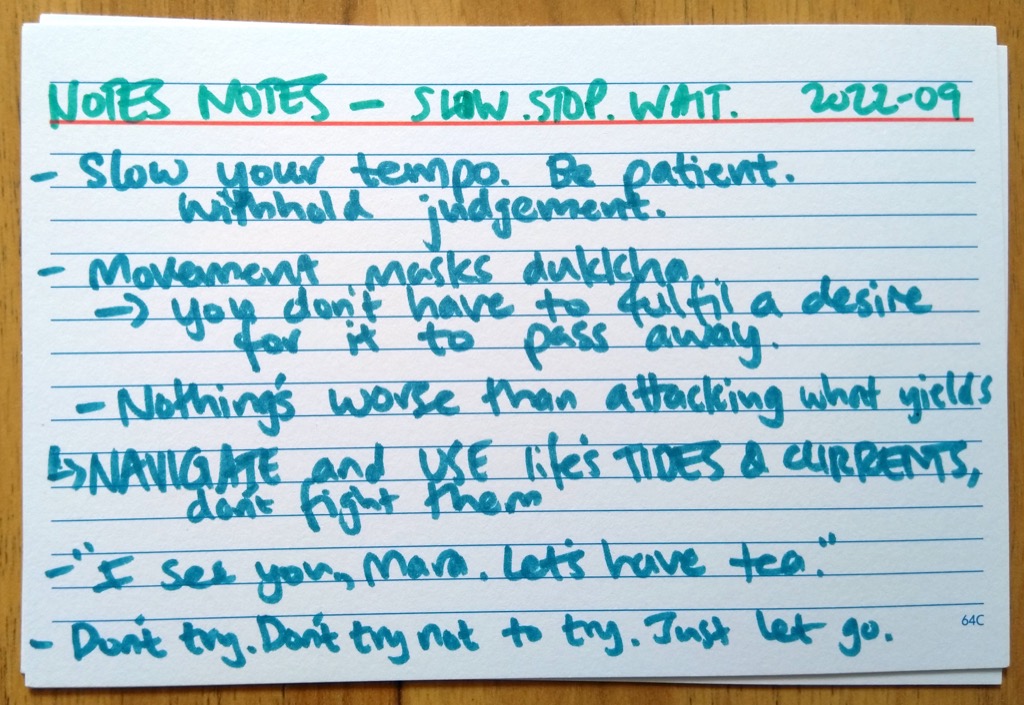 NOTES NOTES - SLOW.STOP.WAIT. 2022-09
- Slow your tempo. Be patient.
withhold judgement.
- Movement masks dukkha.
→ you don't have to fulfil a desire
for it to pass away.
- Nothing's worse than attacking what yields
↳ NAVIGATE and USE life's TIDES & CURRENTS,
don't fight them
- "I see you, Mara. Let's have tea."
- Don't try. Don't try not to try. Just let go.
64C